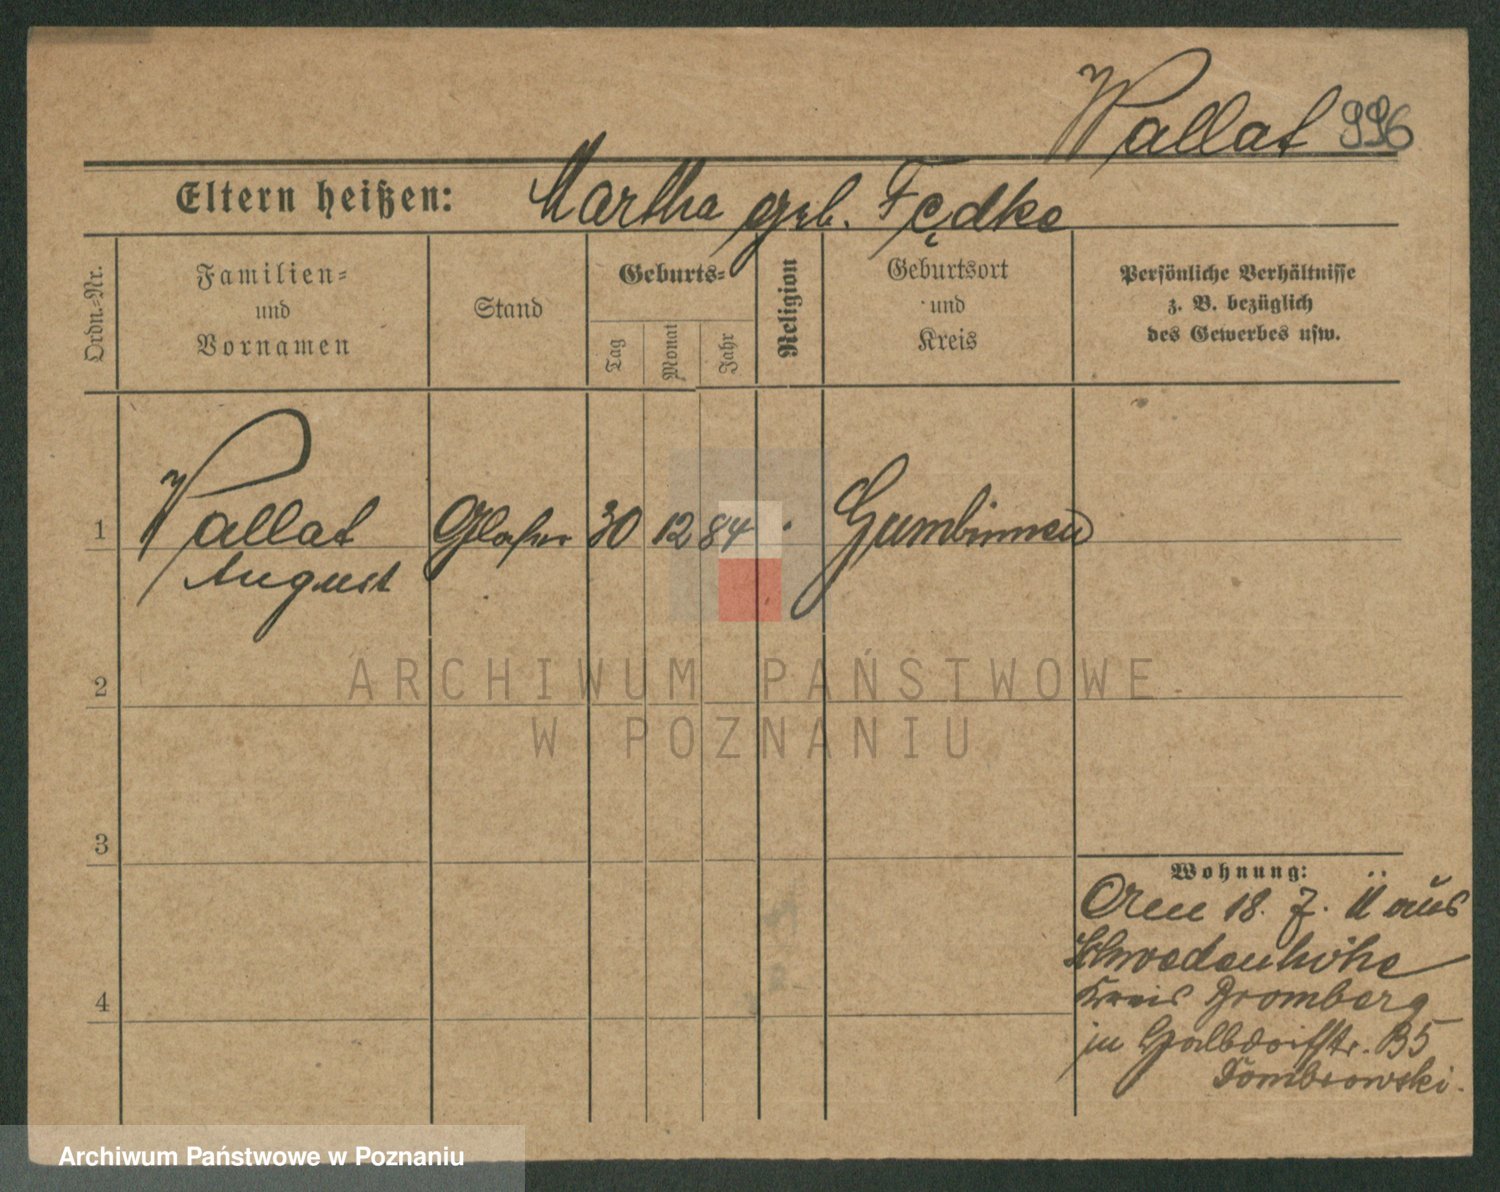 Wallat 996
Eltern heißen: Martha geb. Fędke
Ordn.-Nr.
Familien-
und
Vornamen
Stand
Geburts-
Tag
Monat
Jahr
Religion
Geburtsort
und
Kreis
Persönliche Verhältnisse
z. B. bezüglich
des Gewerbes usw.
1 Wallat Glaser 30 12 84 Gumbinnen
August
2
3
4
Wohnung:
18. 7. 11 aus
Schwedenhöhe
Kreis Bromberg
in 35
Dombrowski.
ARCHIWUM PAŃSTWOWE
W POZNANIU
Archiwum Państwowe w Poznaniu